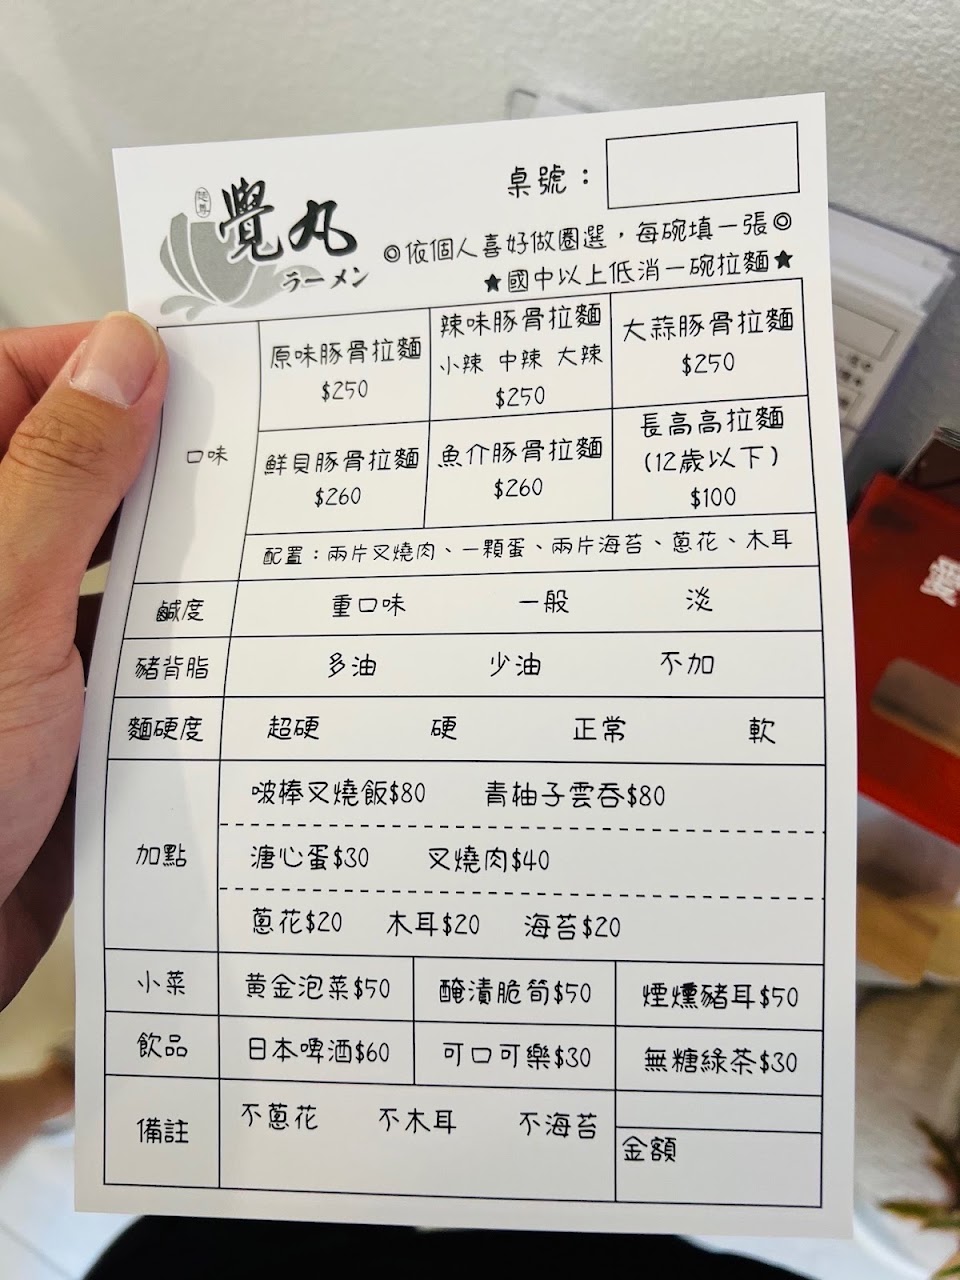 桌號：
覺丸
ラーメン
◎依個人喜好做圈選，每碗填一張◎
★國中以上低消一碗拉麵★
口味
原味豚骨拉麵
$250
辣味豚骨拉麵
小辣 中辣 大辣
$250
大蒜豚骨拉麵
$250
鮮貝豚骨拉麵
$260
魚介豚骨拉麵
$260
長高高拉麵
(12歲以下)
$100
配置：兩片叉燒肉、一顆蛋、兩片海苔、蔥花、木耳
鹹度 重口味 一般 淡
豬背脂 多油 少油 不加
麵硬度 超硬 硬 正常 軟
加點
啵棒叉燒飯$80 青柚子雲吞$80
溏心蛋$30 叉燒肉$40
蔥花$20 木耳$20 海苔$20
小菜 黃金泡菜$50 醃漬脆筍$50 煙燻豬耳$50
飲品 日本啤酒$60 可口可樂$30 無糖綠茶$30
備註 不蔥花 不木耳 不海苔
金額
愛